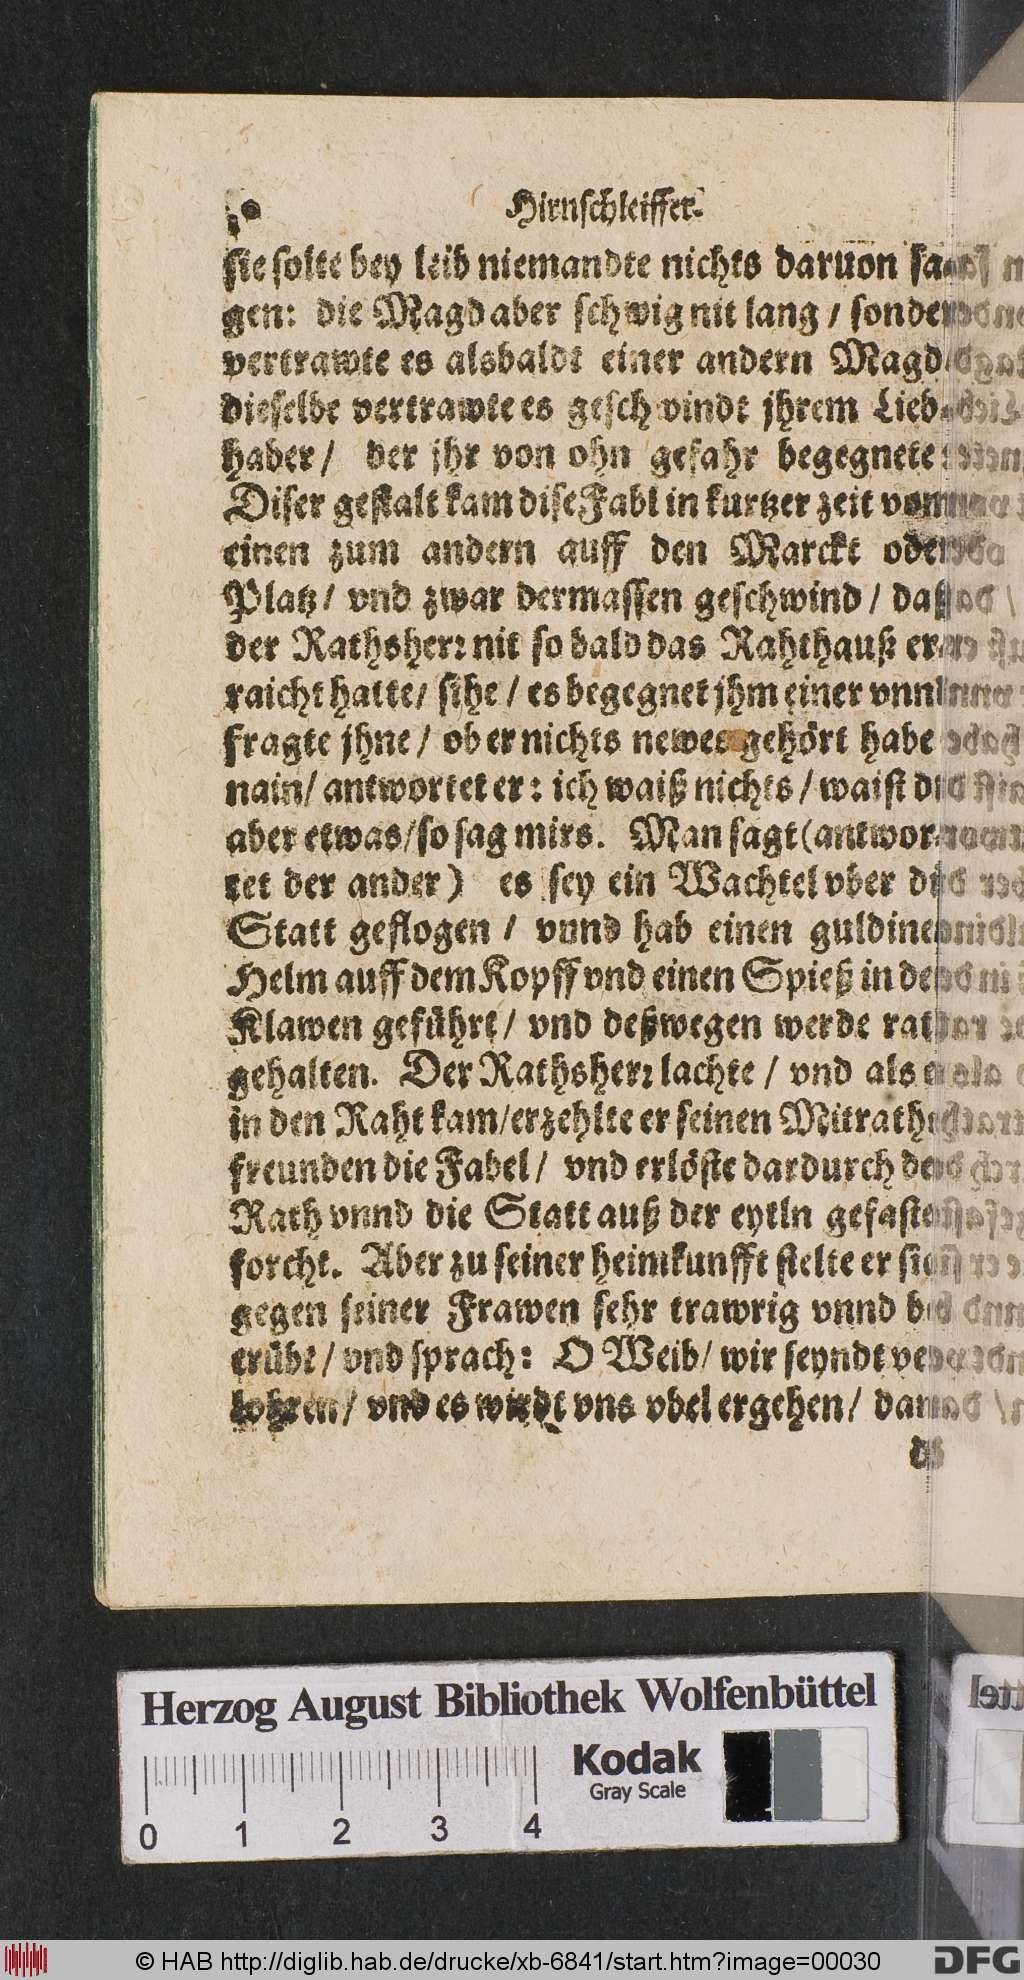 Hirnschleiffer.
sie solte bey leib niemandte nichts daruon sa⸗
gen: die Magd aber schwig nit lang / sonder
vertrawte es alsbaldt einer andern Magd
dieselbe vertrawte es geschwindt jhrem Lieb⸗
haber / der jhr von ohn gefahr begegnete:
Diser gestalt kam dise Fabl in kurtzer zeit vom
einen zum andern auff den Marckt oder
Platz / vnd zwar dermassen geschwind / daß
der Rathsherr nit so bald das Rahthauß er⸗
raicht hatte / sihe / es begegnet jhm einer vnnd
fragte jhne / ob er nichts newes gehört habe
nain / antwortet er: ich waiß nichts / waist du
aber etwas / so sag mirs. Man sagt (antwor⸗
tet der ander) es sey ein Wachtel vber die
Statt geflogen / vnnd hab einen guldinen
Helm auff dem Kopff vnd einen Spieß in den
Klawen geführt / vnd deßwegen werde rath
gehalten. Der Rathsherr lachte / vnd als er
in den Raht kam / erzehlte er seinen Mitraths
freunden die Fabel / vnd erlöste dardurch den
Rath vnnd die Statt auß der eytln gefasten
forcht. Aber zu seiner heimkunfft stelte er sich
gegen seiner Frawen sehr trawrig vnnd be⸗
trübt / vnd sprach: O Weib / wir seyndt ver⸗
lohren / vnd es wirdt vns vbel ergehen / dann
Herzog August Bibliothek Wolfenbüttel
Kodak
Gray Scale
0 1 2 3 4
© HAB http://diglib.hab.de/drucke/xb-6841/start.htm?image=00030
DFG